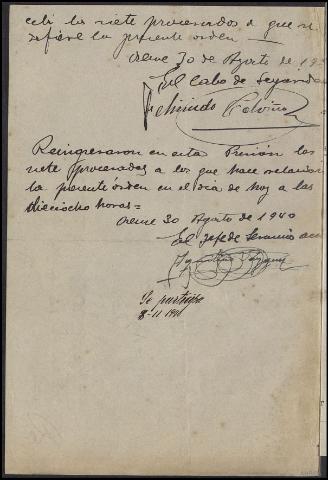 los siete procesados a que se
refiere la presente orden
Orense 30 de Agosto de 19
El Cabo de Seguridad
Reingresaron en esta Prisión los
siete procesados a los que hace relación
la presente orden en el día de hoy a las
dieciocho horas=
Orense 30 Agosto de 1940
El Jefe de Servicios
Se participa
8-11-1940